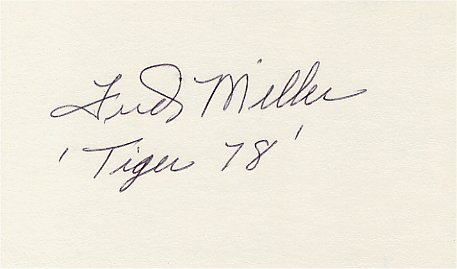 Fred Miller
'Tiger 78'